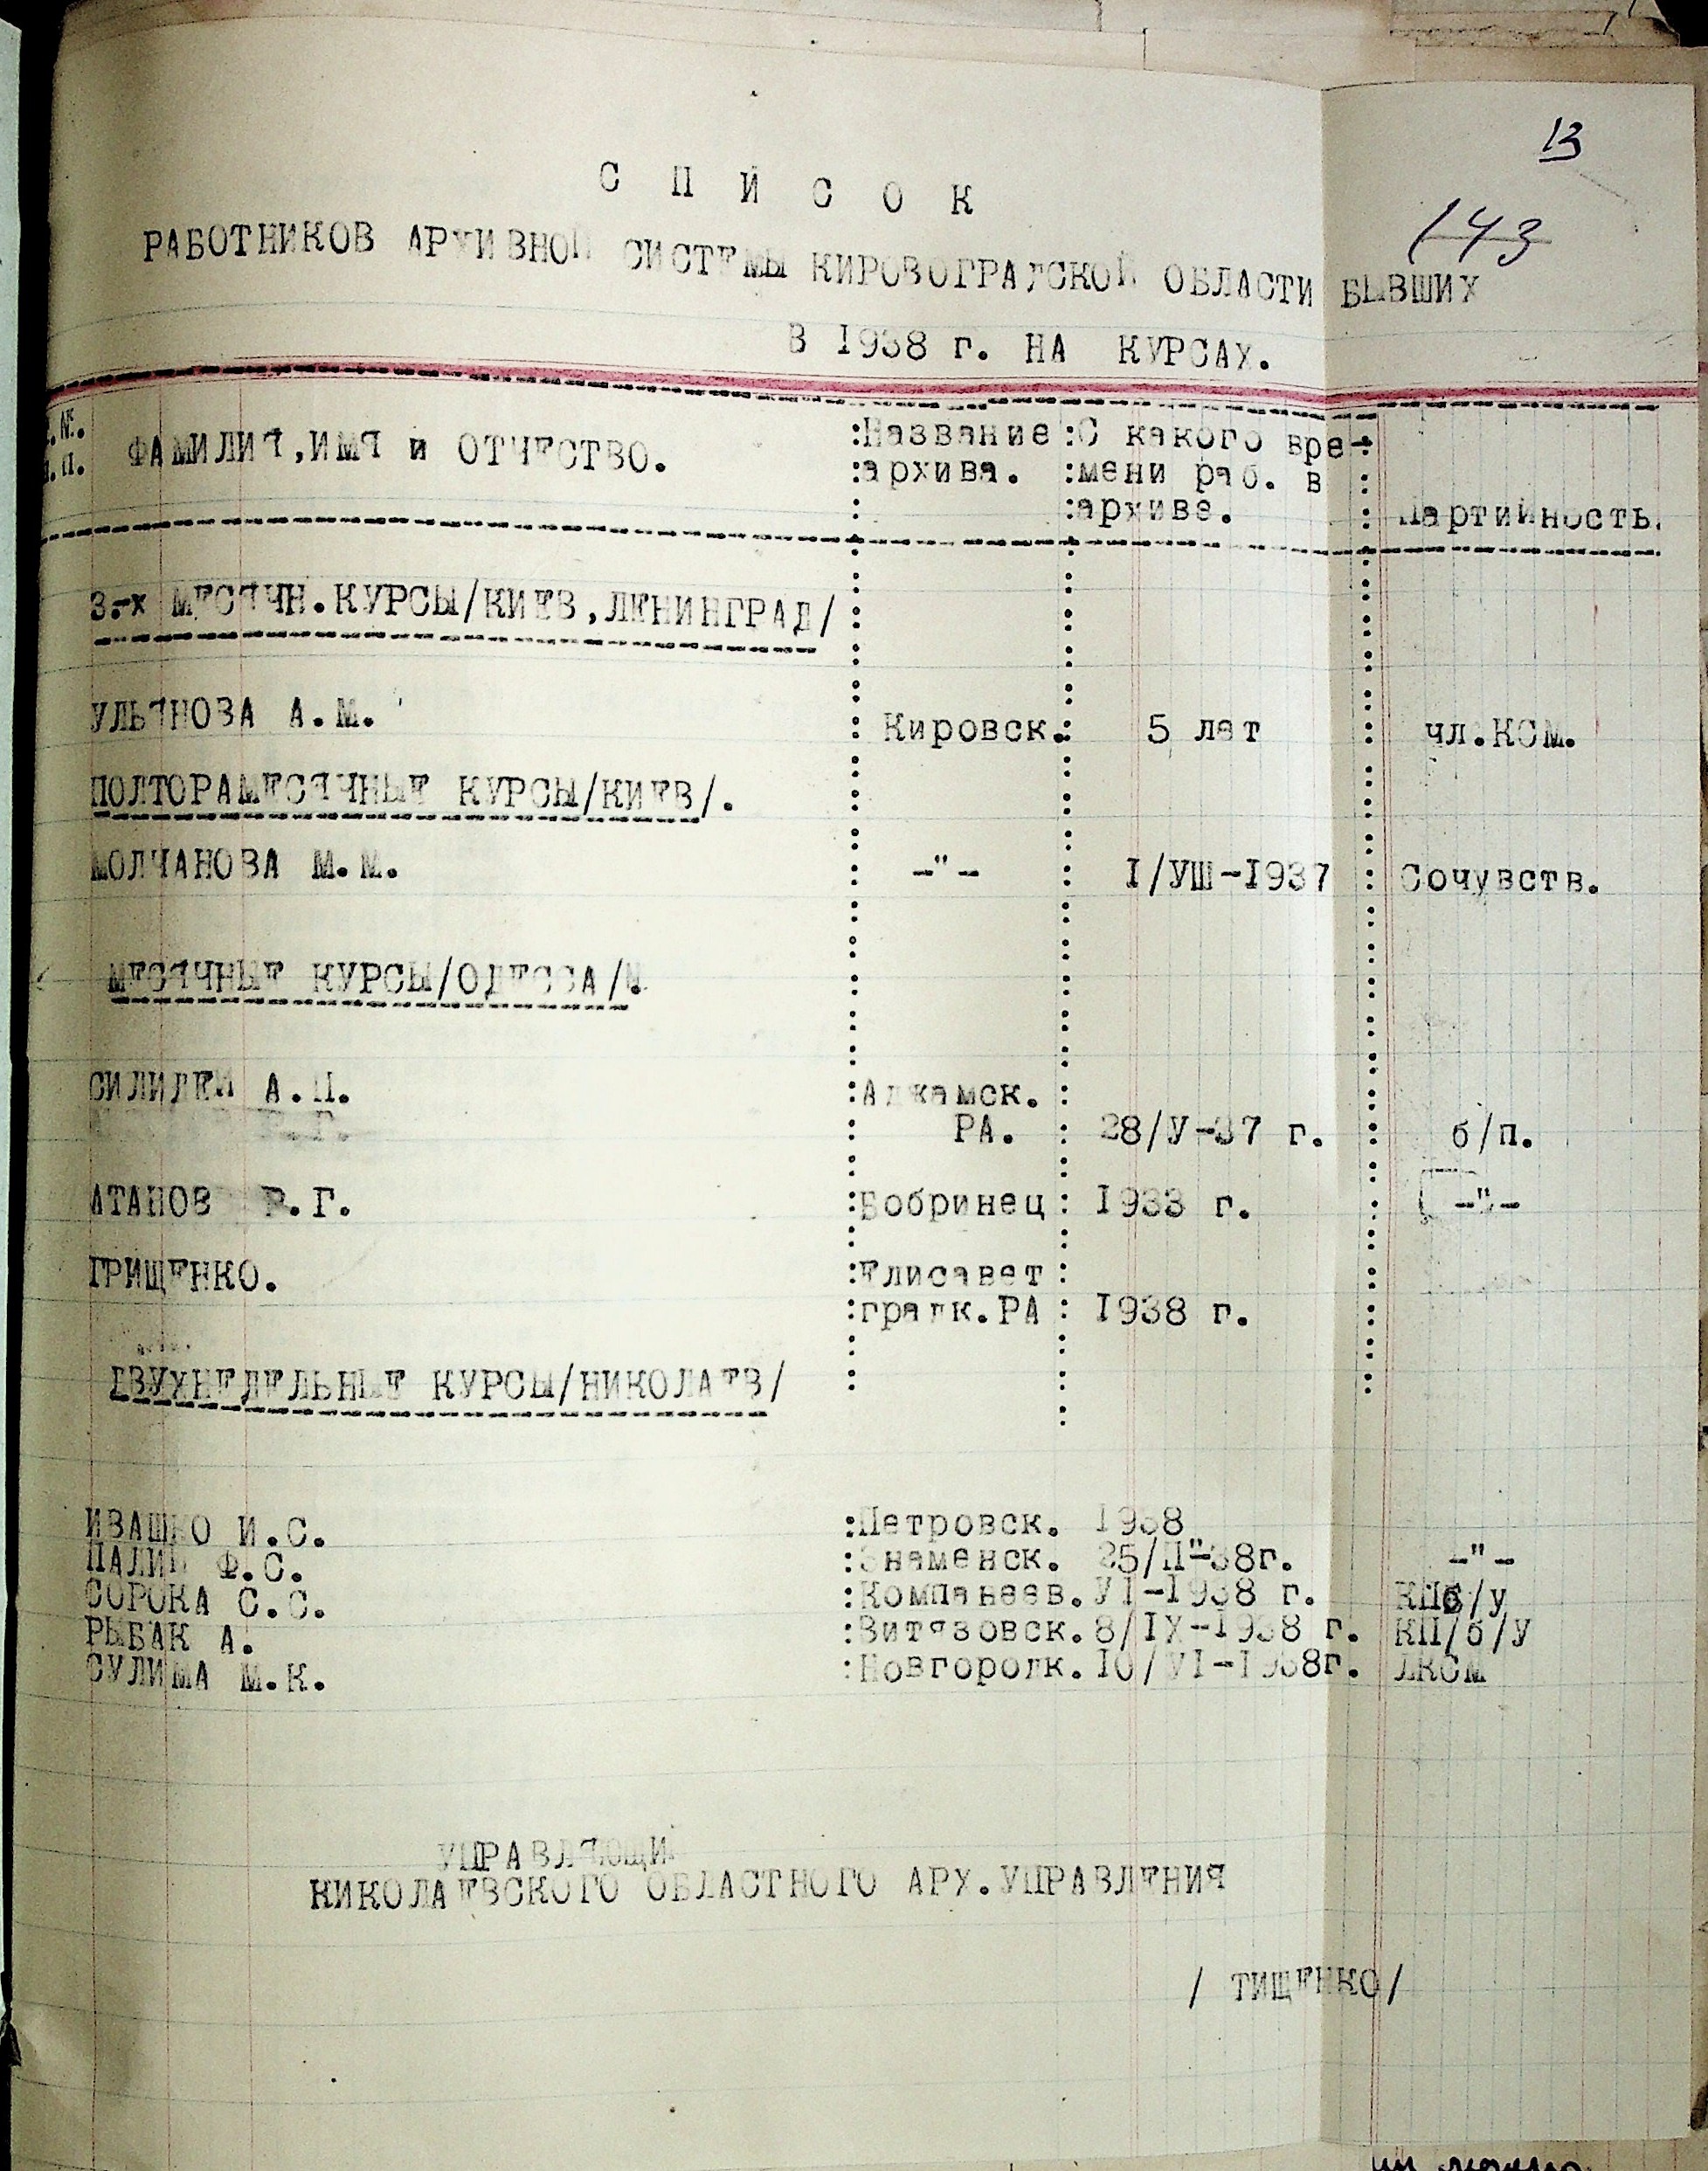 13
143
С П И С О К
РАБОТНИКОВ АРХИВНОЙ СИСТЕМЫ КИРОВОГРАДСКОЙ ОБЛАСТИ БЫВШИХ
В 1938 г. НА КУРСАХ.
№.
п.
ФАМИЛИЯ,ИМЯ и ОТЧЕСТВО. :Название :С какого вре-
:архива. :мени раб. в :
: :архиве. : Партийность.
3.-х МЕСЯЧН.КУРСЫ/КИЕВ,ЛЕНИНГРАД/
УЛЬЯНОВА А.М. : Кировск.: 5 лет : чл.КСМ.
ПОЛТОРАМЕСЯЧНЫЕ КУРСЫ/КИЕВ/.
МОЛЧАНОВА М.М. : -"- : I/УШ-I937 : Сочувств.
МЕСЯЧНЫЕ КУРСЫ/ОДЕССА/.
СИЛИДЕЙ А.П. :Аджамск. :
: РА. : 28/У-37 г. : б/п.
АТАНОВ Р.Г. :Бобринец : I933 г. : -"-
ГРИЩЕНКО. :Елисавет :
:градк.РА : I938 г.
ДВУХНЕДЕЛЬНЫЕ КУРСЫ/НИКОЛАЕВ/
ИВАШКО И.С. :Петровск. I938
ПАЛИЙ Ф.С. :Знаменск. 25/П"-38г. -"-
СОРОКА С.С. :Компанеев.УI-I938 г. КПб/у
РЫБАК А. :Витязовск.8/IХ-I938 г. КП/б/У
СУЛИМА М.К. :Новгородк.I0/УI-I938г. ЛКСМ
УПРАВЛЯЮЩИЙ
НИКОЛАЕВСКОГО ОБЛАСТНОГО АРХ.УПРАВЛЕНИЯ
/ ТИЩЕНКО/